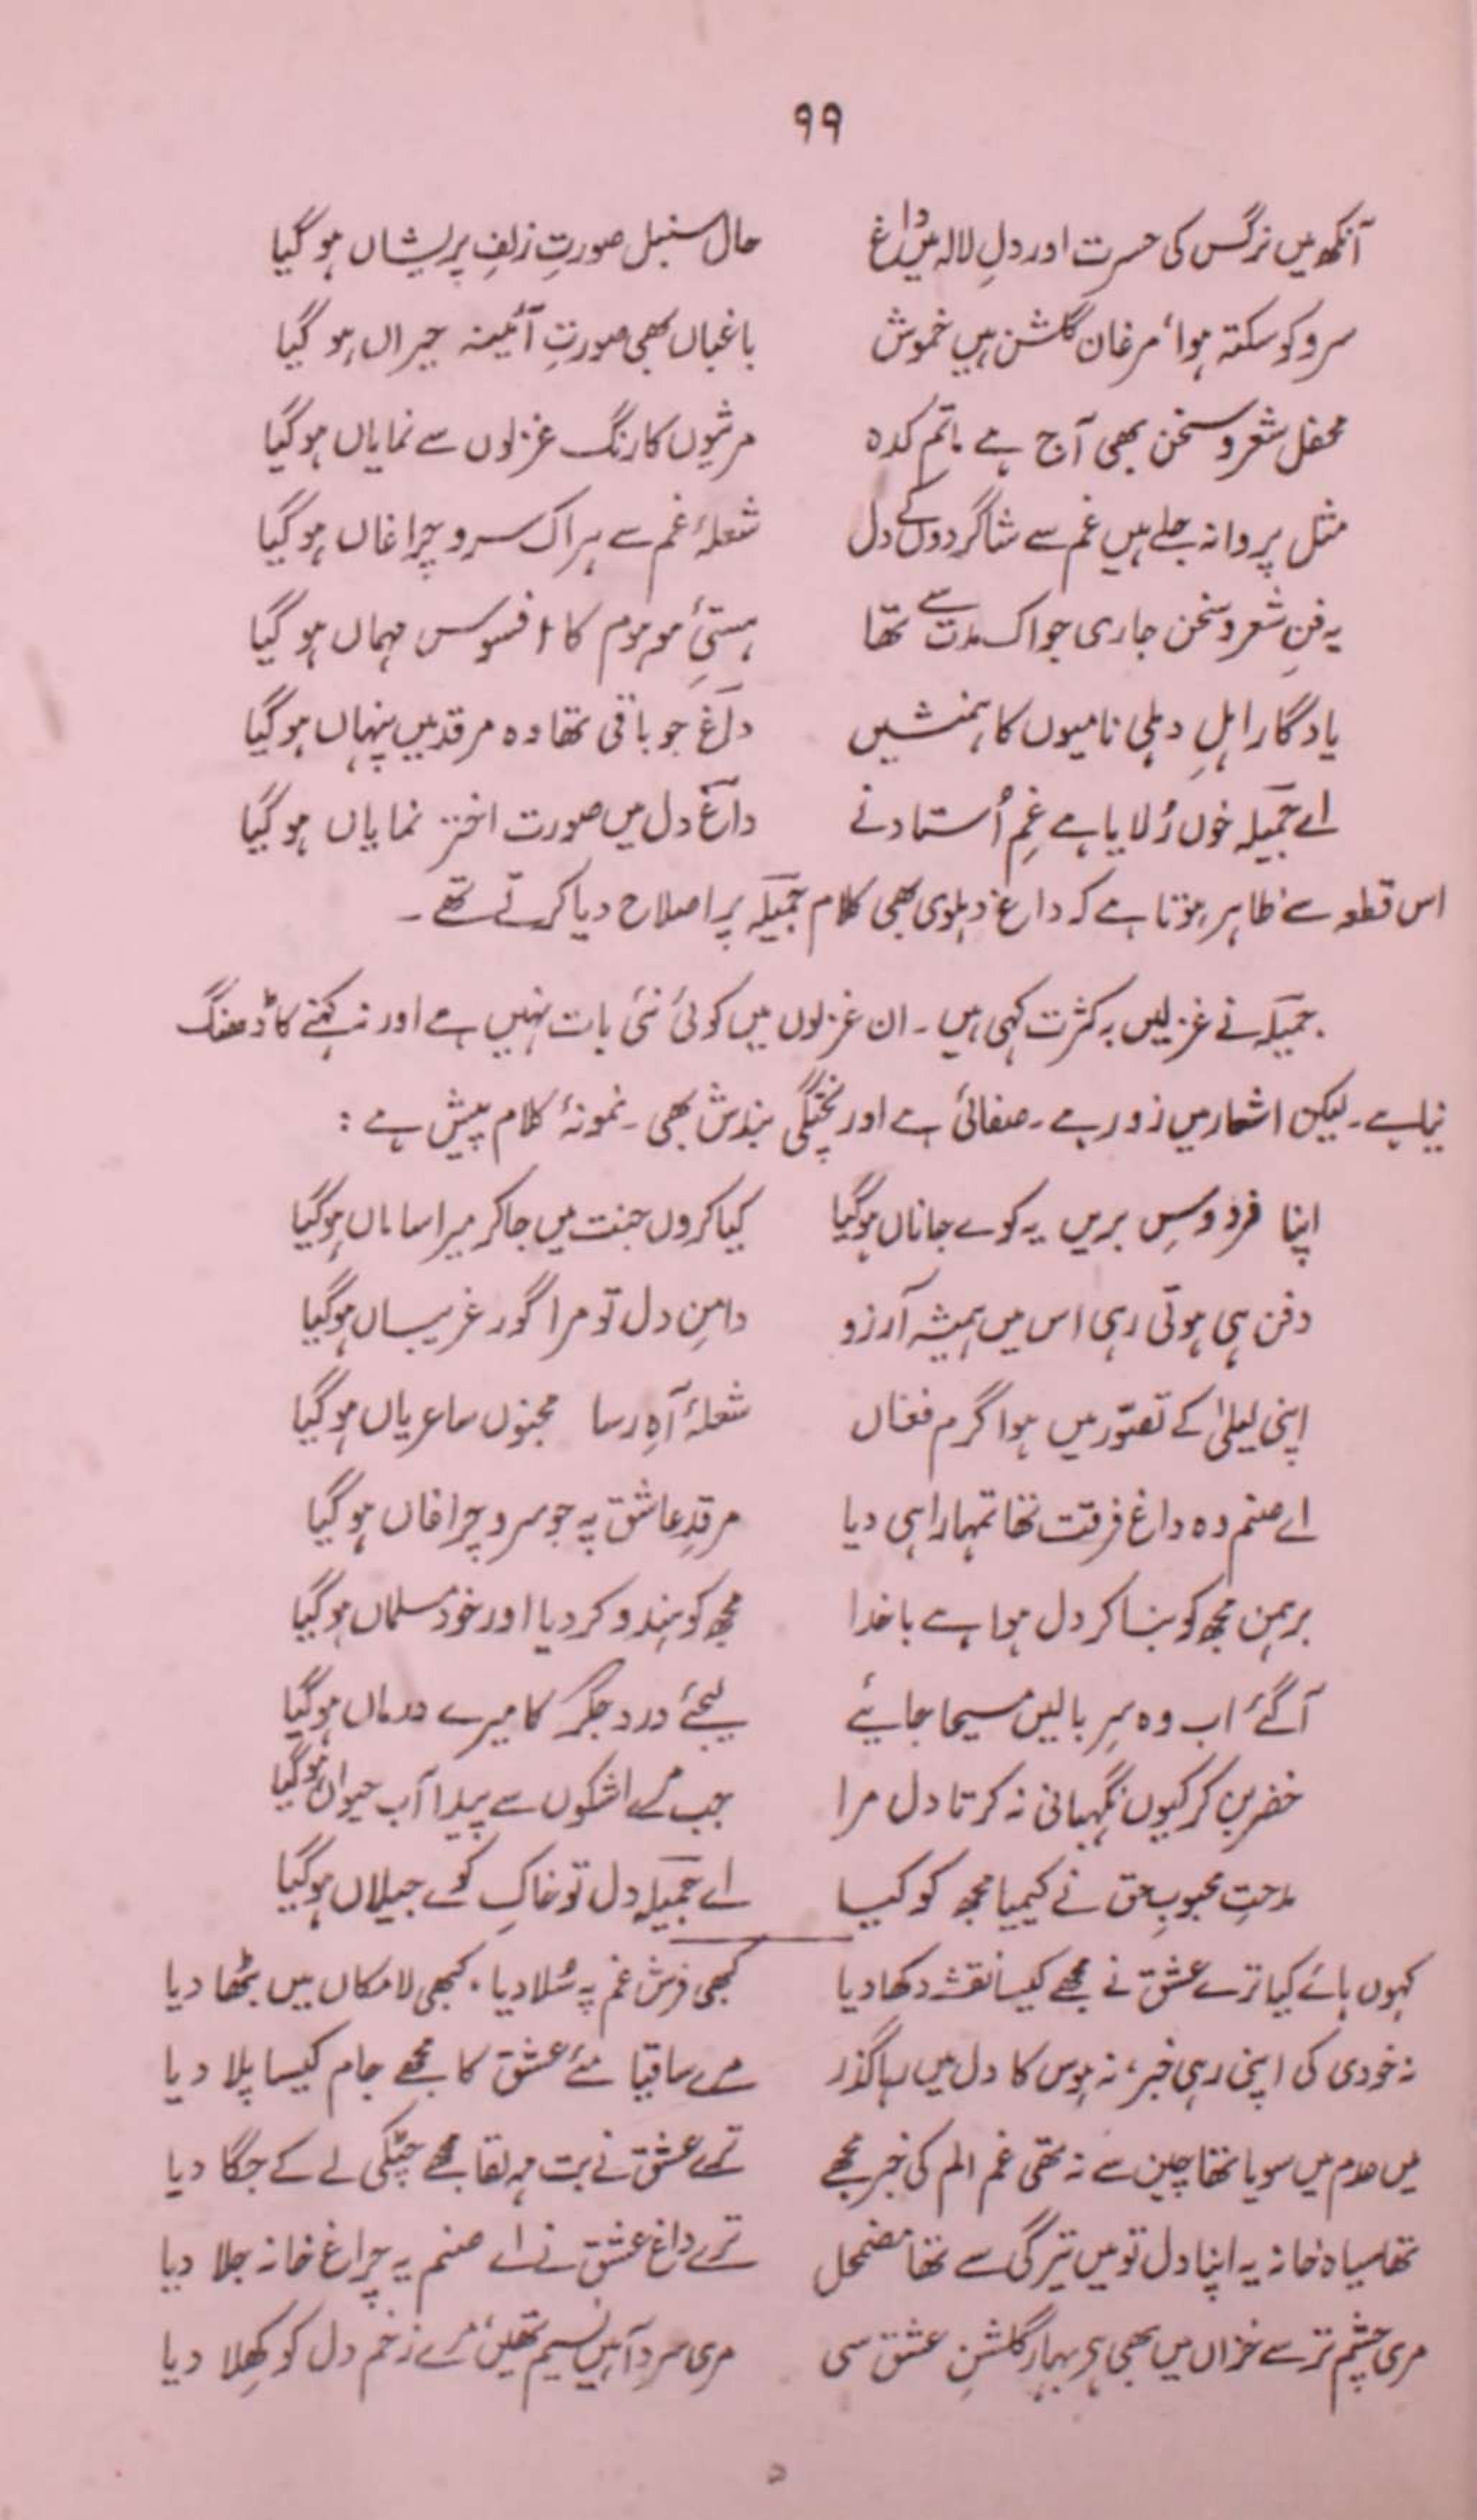 ۹۹
آنکھ میں نرگس کی حسرت اور دلِ لالہ میں داغ حال سنبل صورتِ زلفِ پریشاں ہو گیا
سرو کو سکتہ ہوا، مرغان گلشن ہیں خموش باغباں بھی صورتِ آئینہ حیراں ہو گیا
محفل شعر و سخن بھی آج ہے ماتم کدہ مرثیوں کا رنگ غزلوں سے نمایاں ہو گیا
مثل پروانہ جلے ہیں غم سے شاگردوں کے دل شعلۂ غم سے ہر اک سرو چراغاں ہو گیا
یہ فنِ شعر و سخن جاری جو اک مدت سے تھا ہستیٔ موہوم کا افسوس مہماں ہو گیا
یادگار اہلِ دہلی نامیوں کا ہمنشیں داغ جو باقی تھا وہ مرقد میں پنہاں ہو گیا
اے جمیلہ خوں رُلایا ہے غمِ اُستاد نے داغ دل میں صورت اختر نمایاں ہو گیا
اس قطعہ سے ظاہر ہوتا ہے کہ داغ دہلوی بھی کلام جمیلہ پر اصلاح دیا کرتے تھے۔
جمیلہ نے غزلیں بہ کثرت کہی ہیں۔ ان غزلوں میں کوئی نئی بات نہیں ہے اور نہ کہنے کا ڈھنگ
نیا ہے۔ لیکن اشعار میں زور ہے۔ صفائی ہے اور پختگی بندش بھی۔ نمونۂ کلام پیش ہے:
اپنا فردوسِ بریں یہ کوے جاناں ہو گیا کیا کروں جنت میں جا کر میرا ساماں ہو گیا
دفن ہی ہوتی رہی اس میں ہمیشہ آرزو دامنِ دل تو مرا گور غریباں ہو گیا
اپنی لیلیٰ کے تصوّر میں ہوا گرم فغاں شعلۂ آہِ رسا مجنوں سا عریاں ہو گیا
اے صنم وہ داغ فرقت تھا تمہارا ہی دیا مرقدِ عاشق پہ جو سرو چراغاں ہو گیا
برہمن مجھ کو بنا کر دل ہوا ہے باخدا مجھ کو ہندو کر دیا اور خود مسلماں ہو گیا
آگئے اب وہ سرِ بالیں مسیحا جایئے لیجئے درد جگر کا میرے درماں ہو گیا
خضر بن کر کیوں نگہبانی نہ کرتا دل مرا جب مرے اشکوں سے پیدا آب حیواں ہو گیا
مدحتِ محبوبِ حق نے کیمیا مجھ کو کیا اے جمیلہ دل تو خاکِ کوے جیلاں ہو گیا
کہوں ہائے کیا ترے عشق نے مجھے کیسا نقشہ دکھا دیا کبھی فرش غم پہ سُلا دیا، کبھی لامکاں میں بٹھا دیا
نہ خودی کی اپنی رہی خبر، نہ ہوس کا دل میں رہا گذر مرے ساقیا مئے عشق کا مجھے جام کیسا پلا دیا
میں عدم میں سویا تھا چین سے نہ تھی غم الم کی خبر مجھے ترے عشق نے بت مہ لقا مجھے چٹکی لے کے جگا دیا
تھا سیاہ خانہ یہ اپنا دل تو میں تیرگی سے تھا مضمحل ترے داغ عشق نے اے صنم یہ چراغ خانہ جلا دیا
مری چشم تر سے خزاں میں بھی ہر بہار گلشنِ عشق سی مری سرد آہیں نسیم تھیں، مرے زخم دل کو کھلا دیا